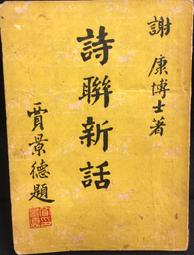 謝康博士著
詩聯新話
賈景德題